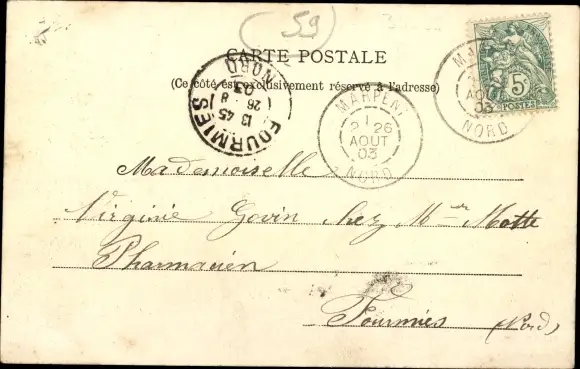 59
CARTE POSTALE
(Ce côté est exclusivement réservé à l'adresse)
5c
POSTES
MARPENT
26
AOUT
03
NORD
FOURMIES
13 45
26 8
03
NORD
Mademoiselle
Virginie Govin chez Mr Motte
Pharmacien
Fourmies (Nord)